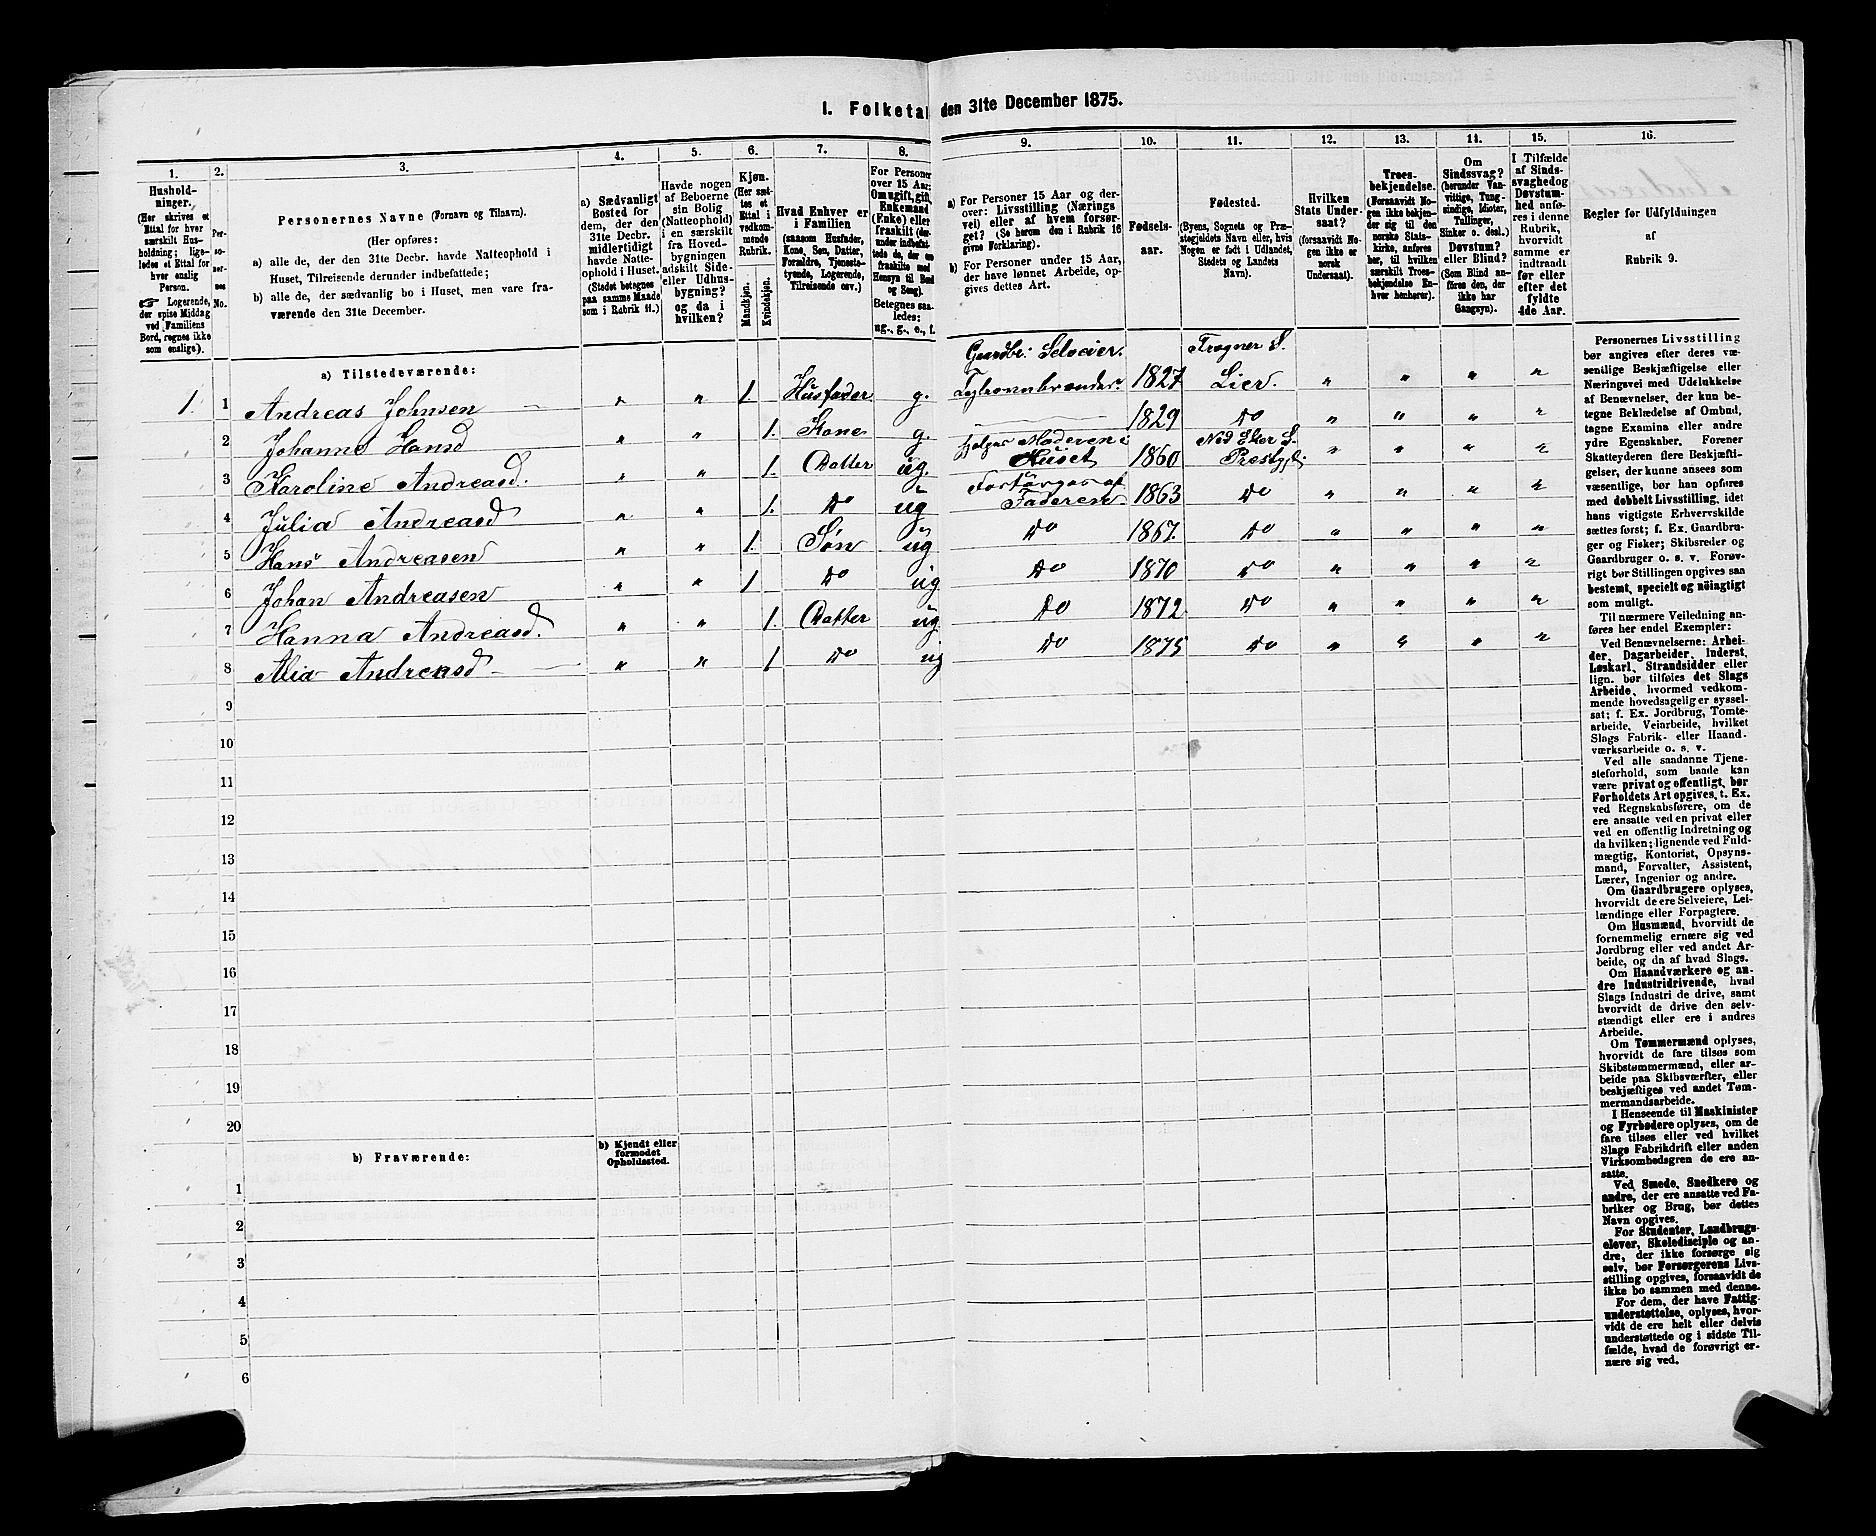 1. Folketal den 31te December 1875.
1.
Hushold-
ninger.
(Her skrives et
Ettal for hver
særskilt Hus-
holdning; lige-
ledes et Ettal for
hver enslig
Person.
Logerende,
der spise Middag
ved Familiens
Bord, regnes ikke
som enslige).
2.
Per-
so-
ner-
nes
No.
3.
Personernes Navne (Fornavn og Tilnavn).
(Her opføres:
a) alle de, der den 31te Decbr. havde Natteophold i
Huset, Tilreisende derunder indbefattede;
b) alle de, der sædvanlig bo i Huset, men vare fra-
værende den 31te December.
4.
a) Sædvanligt
Bosted for
dem, der den
31te Decbr.
midlertidigt
havde Natte-
ophold i Huset.
(Stedet betegnes
paa samme Maade
som i Rubrik 11.)
5.
Havde nogen
af Beboerne
sin Bolig
(Natteophold)
i en særskilt
fra Hoved-
bygningen
adskilt Side-
eller Udhus-
bygning?
og da i
hvilken?
6.
Kjøn.
(Her sæt-
tes et
Ettal i
vedkom-
mende
Rubrik.
Mandkjøn.
Kvindekjøn.
7.
Hvad Enhver er
i Familien
(saasom Husfader,
Kone, Søn, Datter,
Forældre, Tjeneste-
tyende, Logerende,
Tilreisende osv.)
8.
For Personer
over 15 Aar:
Om ugift, gift,
Enkemand
(Enke) eller
fraskilt (der-
under indbefat-
tede de, der ere
fraskilte med
Hensyn til Bord
og Seng).
Betegnes saa-
ledes:
ug., g., e., f.
9.
a) For Personer 15 Aar og der-
over: Livsstilling (Nærings-
vei) eller af hvem forsør-
get? (Se herom den i Rubrik 16
givne Forklaring).
b) For Personer under 15 Aar,
der have lønnet Arbeide, op-
gives dettes Art.
10.
Fødsels-
aar.
11.
Fødested.
(Byens, Sognets og Præ-
stegjeldets Navn eller, hvis
Nogen er født i Udlandet,
Stedets og Landets
Navn).
12.
Hvilken
Stats Under-
saat?
(forsaavidt No-
gen ikke er
norsk
Undersaat).
13.
Troes-
bekjendelse.
(Forsaavidt No-
gen ikke bekjen-
der sig til den
norske Stats-
kirke, anføres
her, til hvilken
særskilt Troes-
bekjendelse En-
hver henhører).
14.
Om
Sindssvag?
(herunder Van-
vittige, Tung-
sindige, Idioter,
Tullinger,
Sinker o. desl.)
Døvstum?
eller Blind?
(Som Blind an-
føres den, der
ikke har
Gangsyn).
15.
I Tilfælde
af Sinds-
svaghed og
Døvstum-
hed anfø-
res i denne
Rubrik,
hvorvidt
samme er
indtraadt
før eller
efter det
fyldte
4de Aar.
16.
Regler for Udfyldningen
af
Rubrik 9.
a) Tilstedeværende:
1. 1 Andreas Johnsen — " " 1. Husfader g. Gaardbr: Selveier. 1827 Tragner S. Lier. " " " "
2 Johanne Hansd " " 1. Kone g. — 1829 Do " " " "
3 Karoline Andreasd. " " 1. Datter ug. hjelper Moderen i Huset 1860 Ned Eker S. Prestgj: " " " "
4 Julia Andreasd " " 1. Do ug Forsørges af Faderen 1863 Do " " " "
5 Hans Andreasen " " 1. Søn ug Do 1867. Do " " " "
6 Johan Andreasen " " 1 Do ug. Do 1870 Do " " " "
7 Hanna Andreasd. " " 1. Datter ug Do 1872 Do " " " "
8 Andreasd — " " 1 Do ug Do 1875 Do " " " "
9
10
11
12
13
14
15
16
17
18
19
20
b) Fraværende:
b) Kjendt eller
formodet
Opholdssted.
1
2
3
4
5
6
Personernes Livsstilling
bør angives efter deres væ-
sentlige Beskjæftigelse eller
Næringsvei med Udelukkelse
af Benævnelser, der kun be-
tegne Beklædelse af Ombud,
tagne Examina eller andre
ydre Egenskaber. Forener
Skatteyderen flere Beskjæfti-
gelser, der kunne ansees som
væsentlige, bør han opføres
med dobbelt Livsstilling, idet
hans vigtigste Erhvervskilde
sættes først; f. Ex. Gaardbru-
ger og Fisker; Skibsreder og
Gaardbruger o. s. v. Forøv-
rigt bør Stillingen opgives saa
bestemt, specielt og nöiagtigt
som muligt.
Til nærmere Veiledning an-
føres her endel Exempler:
Ved Benævnelserne: Arbei-
der, Dagarbeider, Inderst,
Løskarl, Strandsidder eller
lign. bør tilføies det Slags
Arbeide, hvormed vedkom-
mende hovedsagelig er syssel-
sat; f. Ex. Jordbrug, Tomte-
arbeide, Veiarbeide, hvilket
Slags Fabrik- eller Haand-
værksarbeide o. s. v.
Ved alle saadanne Tjene-
steforhold, som baade kan
være privat og offentligt, bør
Forholdets Art opgives, t. Ex.
ved Regnskabsførere, om de
ere ansatte ved en privat eller
ved en offentlig Indretning og
da hvilken; lignende ved Fuld-
mægtig, Kontorist, Opsyns-
mand, Forvalter, Assistent,
Lærer, Ingeniør og andre.
Om Gaardbrugere oplyses,
hvorvidt de ere Selveiere, Lei-
lændinge eller Forpagtere.
Om Husmænd, hvorvidt de
fornemmelig ernære sig ved
Jordbrug eller ved andet Ar-
beide, og da af hvad Slags.
Om Haandværkere og an-
dre Industridrivende, hvad
Slags Industri de drive, samt
hvorvidt de drive den selv-
stændigt eller ere i andres
Arbeide.
Om Tømmermænd oplyses,
hvorvidt de fare tilsøs som
Skibstømmermænd, eller ar-
beide paa Skibsværfter, eller
beskjæftiges ved andet Tøm-
mermandsarbeide.
I Henseende til Maskinister
og Fyrbødere oplyses, om de
fare tilsøs eller ved hvilket
Slags Fabrikdrift eller anden
Virksomhedsgren de ere an-
satte.
Ved Smede, Snedkere og
andre, der ere ansatte ved Fa-
briker og Brug, bør dettes
Navn opgives.
For Studenter, Landbrugs-
elever, Skoledisciple og an-
dre, der ikke forsørge sig
selv, bør Forsørgerens Livs-
stilling opgives, forsaavidt de
ikke bo sammen med denne.
For dem, der have Fattig-
understøttelse, oplyses, hvor-
vidt de ere helt eller delvis
understøttede og i sidste Til-
fælde, hvad de forøvrigt er-
nære sig ved.